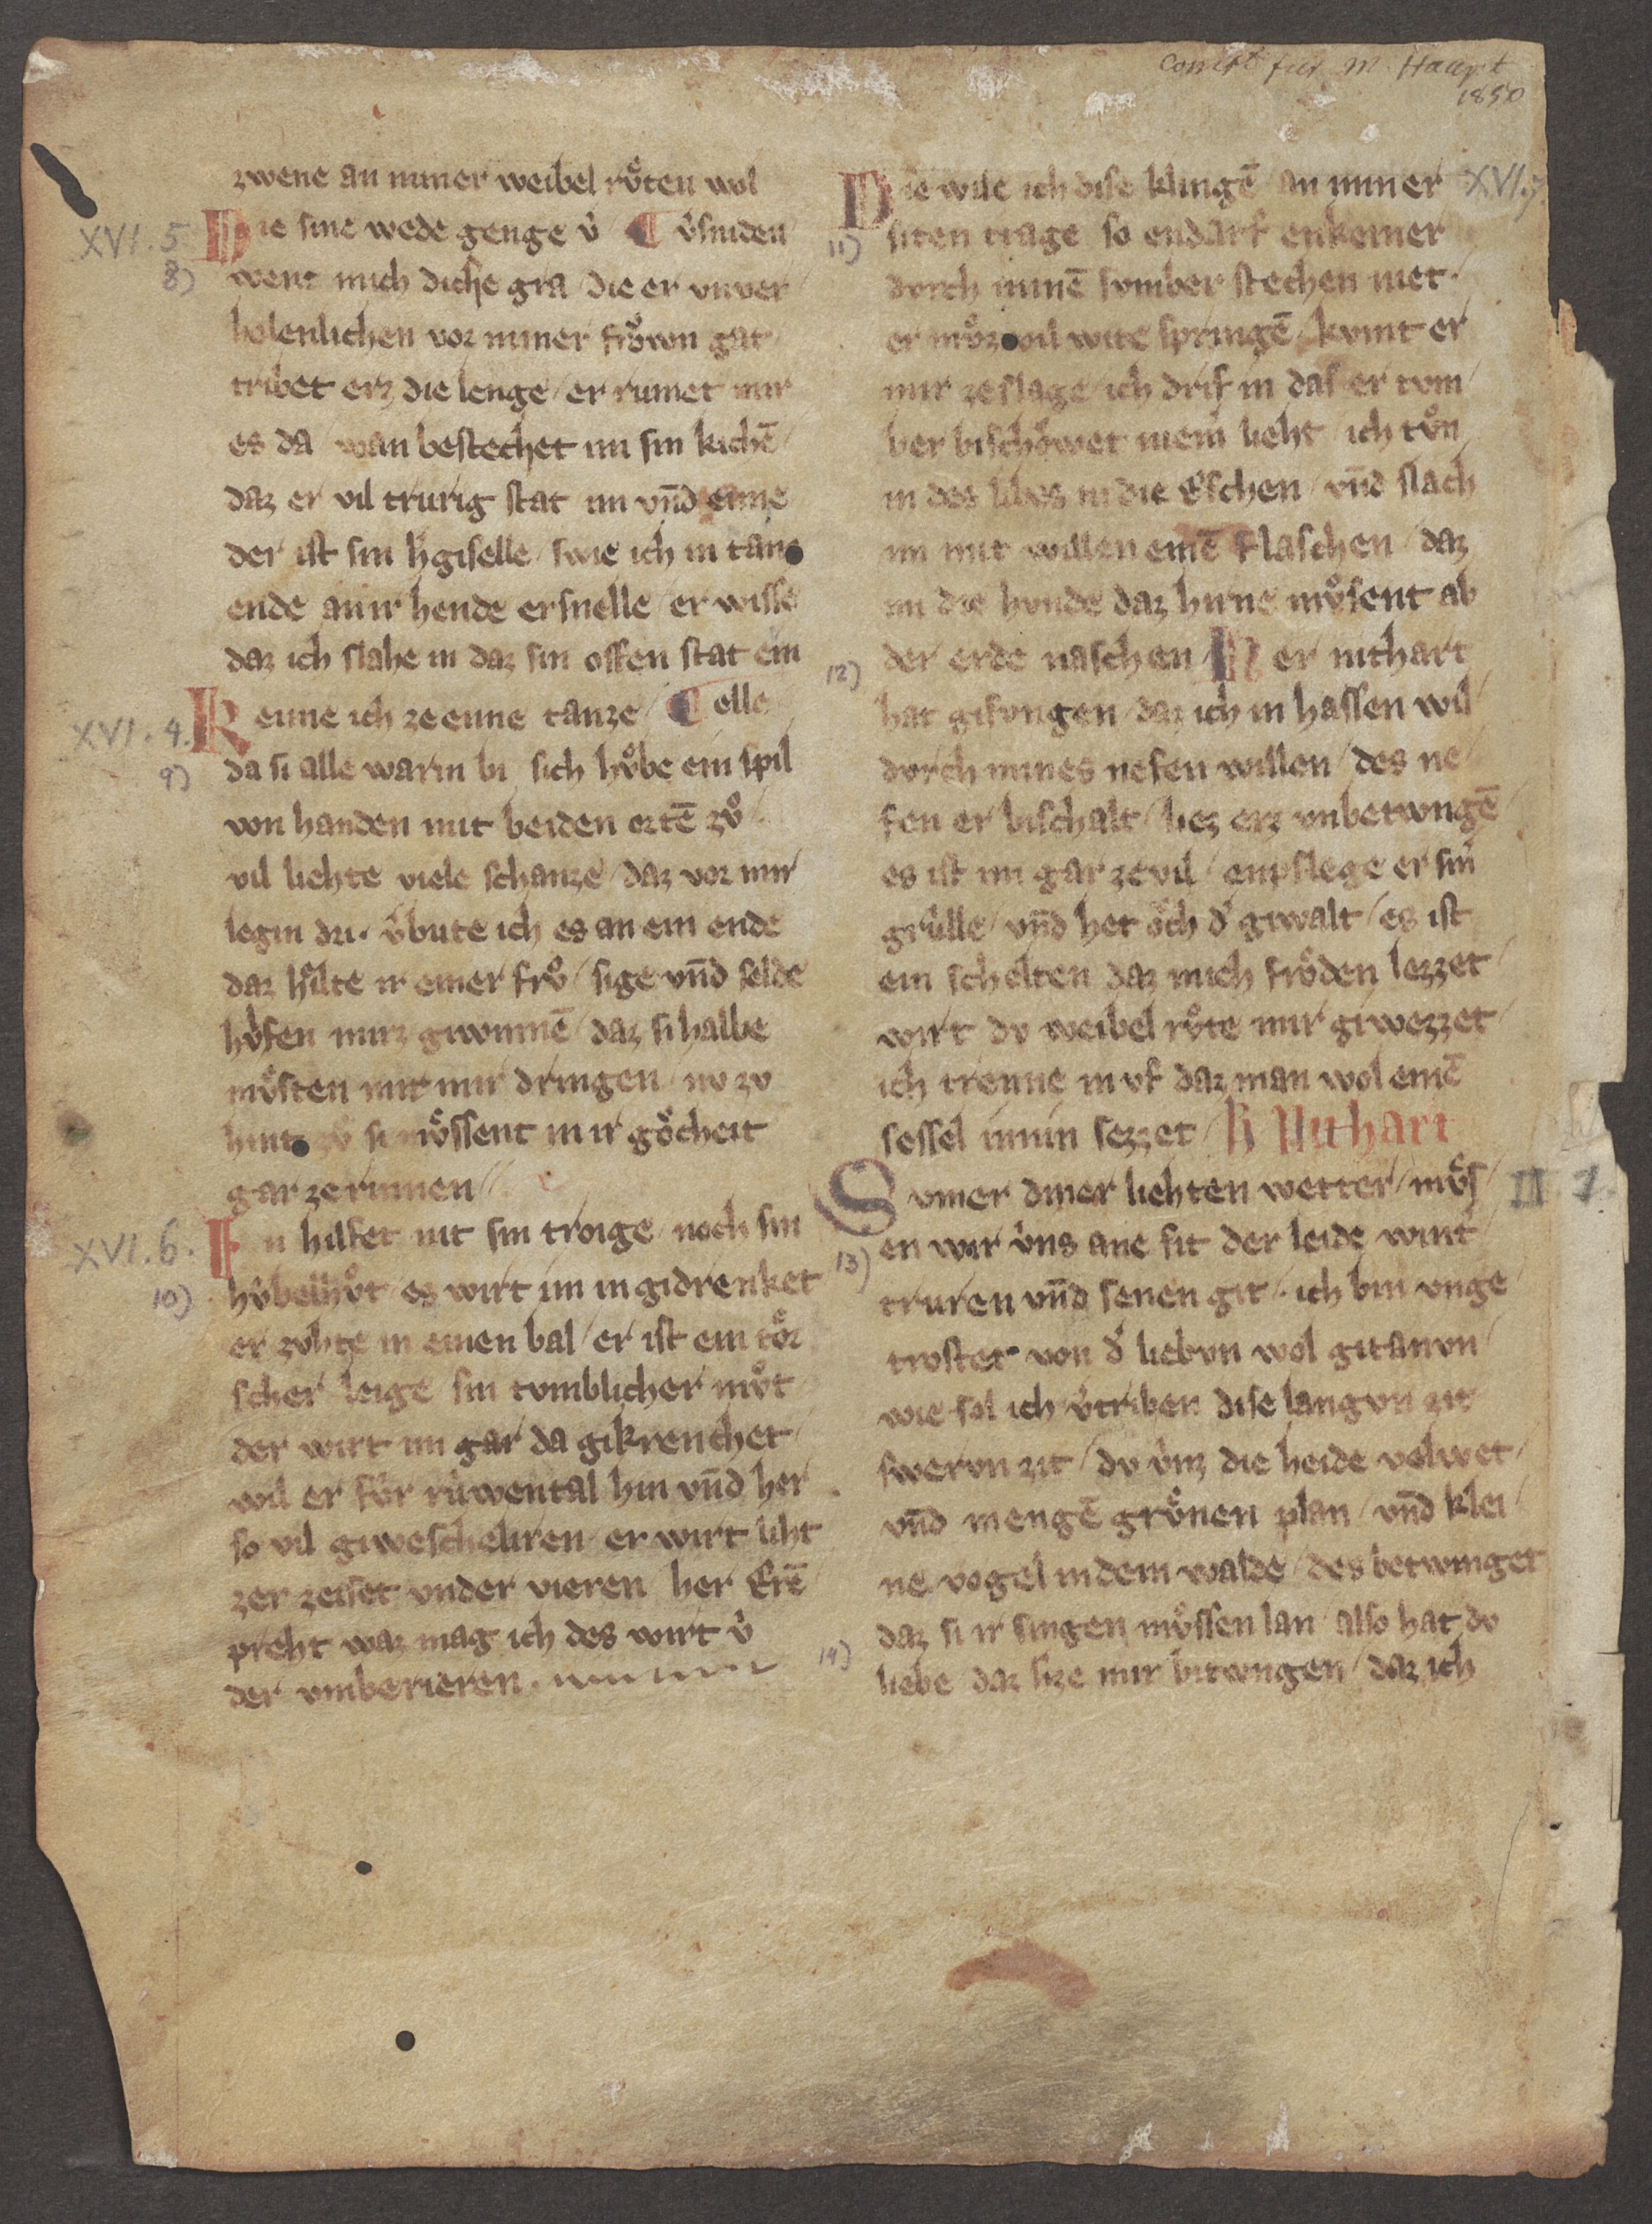 1850
zwene an miner weibel rv̊ten wol
XVI. 5.
Die sine wede genge v̉ ¶ v̉sniden
8)
went mich diche gra die er vnver
holenlichen vor miner frv̊wn gat
tribet erz die lenge / er rumet mir
es da wan bestechet im sin kichē
daz er vil trurig stat im vn̄d eime
der ist sin h̉giselle / swie ich in
ende an ir hende ersnelle / er wisse
daz ich slahe in daz sin offen stat ein
XVI. 4.
Kenne ich ze enne tanze / ¶ elle
9)
da si alle warin bi sich hv̊be ein spil
von handen mit beiden ortē zv̊
vil liehte viele schanze / daz vor mir
legin dri. v̉bute ich es an ein ende
daz ir einer frv̊ / sige vn̄d selde
hv̉lfen mirz giwinnē / daz si halbe
mv̊sten mit mir dringen nv zv
si mv̊ssent in ir gǒcheit
gar zerinnen //
XVI. 6.
In hilfet nit sin troige noch sin
10)
hv̉belhv̊t / es wirt im in gidrenket
er zvhte in einen bal / er ist ein tǒr
scher leige sin tvmblicher mv̊t
der wirt im gar da gikrenchet
wil er fv̉r rv̉wental hin vn̄d her
so vil giweschelieren er wirt liht
zer zeiset vnder vieren her Erē
preht waz mag ich des wirt v̉
der vmberieren.
XVI. 7.
Die wile ich dise klingē an miner
11)
siten trage so endarf enkeiner
dvrch minē svmber stechen niet.
er mv̊z vil wite springē / kvmt er
mir ze slage / ich drif in das er tvm
ber bischǒwet niem̉ lieht / ich tv̊n
in des libes in die Eschen / vn̄d slach
im mit willen einē flaschen / daz
im die hvnde daz hirne mv̊sent ab
12)
der erde naschen / Her nithart
hat gisvngen daz ich in hassen wil
dvrch mines nefen willen / des ne
fen er bischalt / liez erz vnbetwngē
es ist im gar zevil / enpflege er sin̉
grv̉lle / vn̄d het ǒch d̉ giwalt / es ist
ein schelten daz mich frǒden lezzet
wirt dv weibel rv̊te mir giwezzet
ich trenne in vf daz man wol einē
sessel in sezzet / H̉ Nithart
III 1.
Svmer diner liehten wetter / mv̊s
13)
en wir v̉ns ane sit der leide wint
truren vn̄d senen git / ich bin vnge
troster von d̉ liebvn wol gitanvn
wie sol ich v̉triben dise langvn zit
swervn zit / dv v̉nz die heide velwet /
vn̄d mengē grv̊nen plan / vn̄d klei
ne vogel in dem walde / des betwinget
daz si ir singen mv̊ssen lan also hat dv
14)
liebe daz mir bitwngen / daz ich